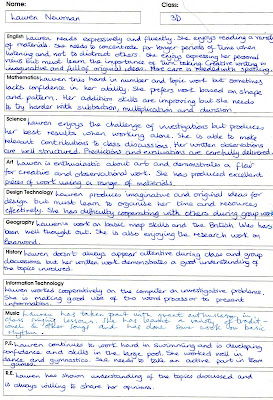 Name: Class:
Lauren Newman 3D
English Lauren reads expressively and fluently. She enjoys reading a range
of materials. She needs to concentrate for longer periods of time when
listening and not to distract others. She enjoys expressing her personal
views but must learn the importance of turn taking. Creative writing is
imaginative and full of original ideas. More care is needed with spelling.
Mathematics Lauren tries hard in number and topic work but sometimes
lacks confidence in her ability. She prefers work based on shape
and pattern. Her addition skills are improving but she needs
to try harder with subtraction, multiplication and division
Science Lauren enjoys the challenge of investigations but produces
her best results when working alone. She is able to make
relevant contributions to class discussions. Her written observations
are well structured. Predictions and evaluations are carefully delivered.
Art Lauren is enthusiastic about art and demonstrates a flair
for creative and observational work. She has produced excellent
pieces of work using a range of materials.
Design Technology Lauren produces imaginative and original ideas for
design but must learn to organise her time and resources
effectively. She has difficulty cooperating with others during group work
Geography Lauren's work on basic map skills and the British Isles has
been well thought out. She is also enjoying the research work on
History Lauren doesn't always appear attentive during class and group
discussions but her written work demonstrates a good understanding of
the topics involved.
Information Technology
Lauren works cooperatively on the computer on investigative problems.
She is making good use of the word processor to present
information.
Music Lauren takes part with great enthusiasm in
class singing lessons. She has learnt a variety of
other songs and has done some work on basic
rhythm.
P.E. Lauren continues to work hard in swimming and is developing
confidence and skills in the large pool. She worked well in
dance and gymnastics. She needs to take an active part in team
games.
R.E. Lauren has shown understanding of the topics discussed and
is always willing to share her opinions.